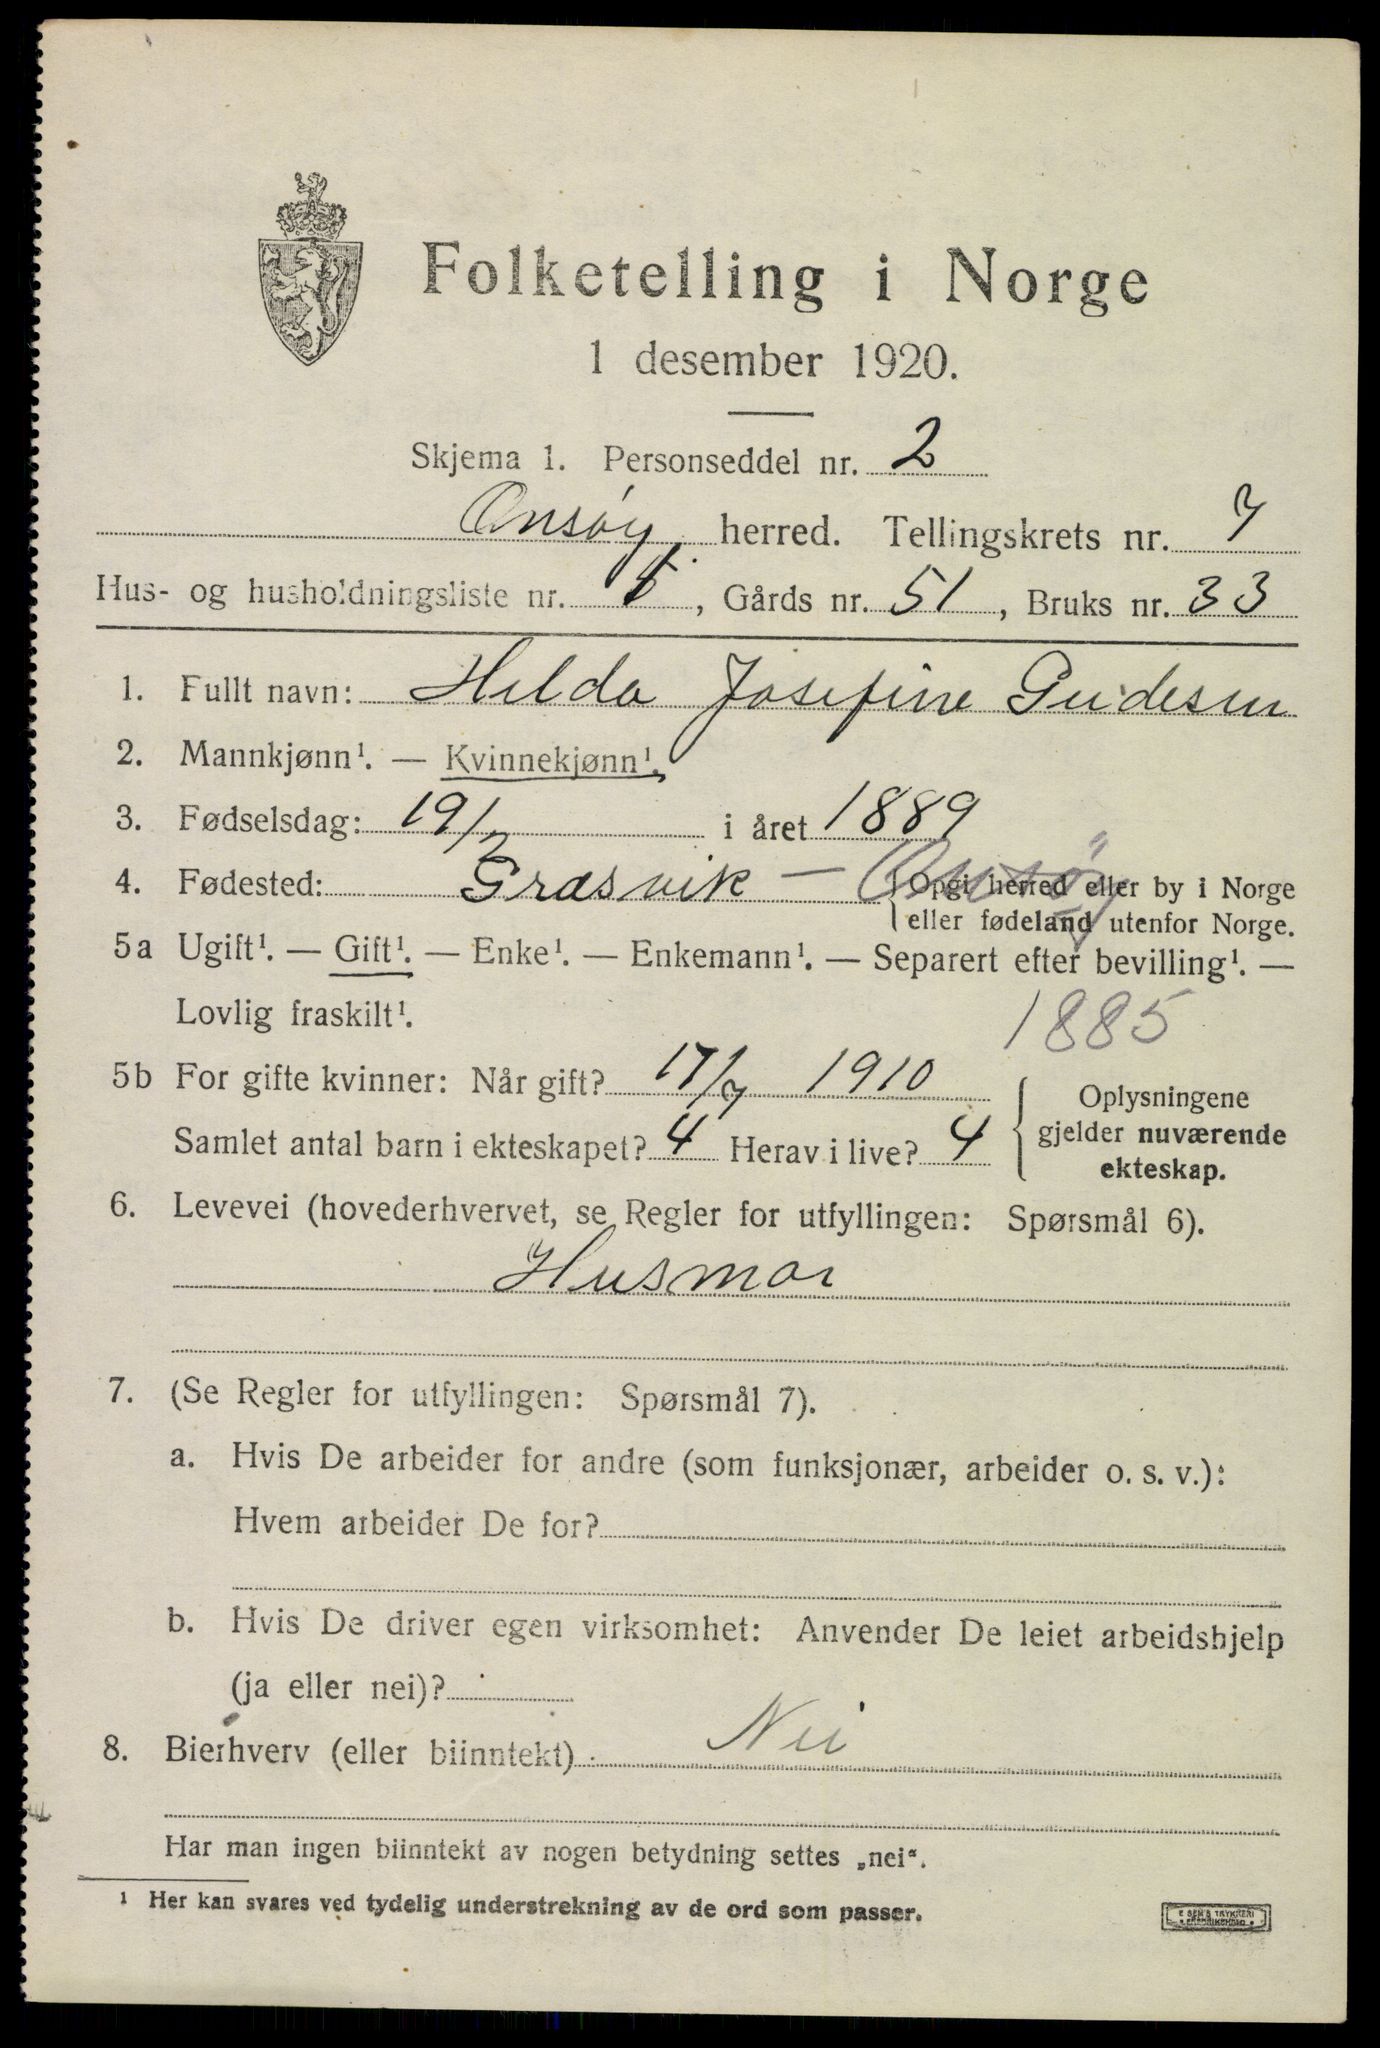 Folketelling i Norge
1 desember 1920.
Skjema 1. Personseddel nr. 2
Onsøy herred. Tellingskrets nr. 7
Hus- og husholdningsliste nr. , Gårds nr. 51, Bruks nr. 33
1. Fullt navn: Hilda Josefine Gudesen
2. Mannkjønn¹. — Kvinnekjønn¹.
3. Fødselsdag: 19/2 i året 1889
4. Fødested: Græsvik — Onsøy {Opgi herred eller by i Norge
eller fødeland utenfor Norge.
5a Ugift¹. — Gift¹. — Enke¹. — Enkemann¹. — Separert efter bevilling¹. —
Lovlig fraskilt¹. 1885
5b For gifte kvinner: Når gift? 17/7 1910
Samlet antal barn i ekteskapet? 4 Herav i live? 4
{Oplysningene
gjelder nuværende
ekteskap.
6. Levevei (hovederhvervet, se Regler for utfyllingen: Spørsmål 6).
Husmor
7. (Se Regler for utfyllingen: Spørsmål 7).
a. Hvis De arbeider for andre (som funksjonær, arbeider o. s. v.):
Hvem arbeider De for?
b. Hvis De driver egen virksomhet: Anvender De leiet arbeidshjelp
(ja eller nei)?
8. Bierhverv (eller biinntekt) Nei
Har man ingen biinntekt av nogen betydning settes „nei“.
¹ Her kan svares ved tydelig understrekning av de ord som passer.